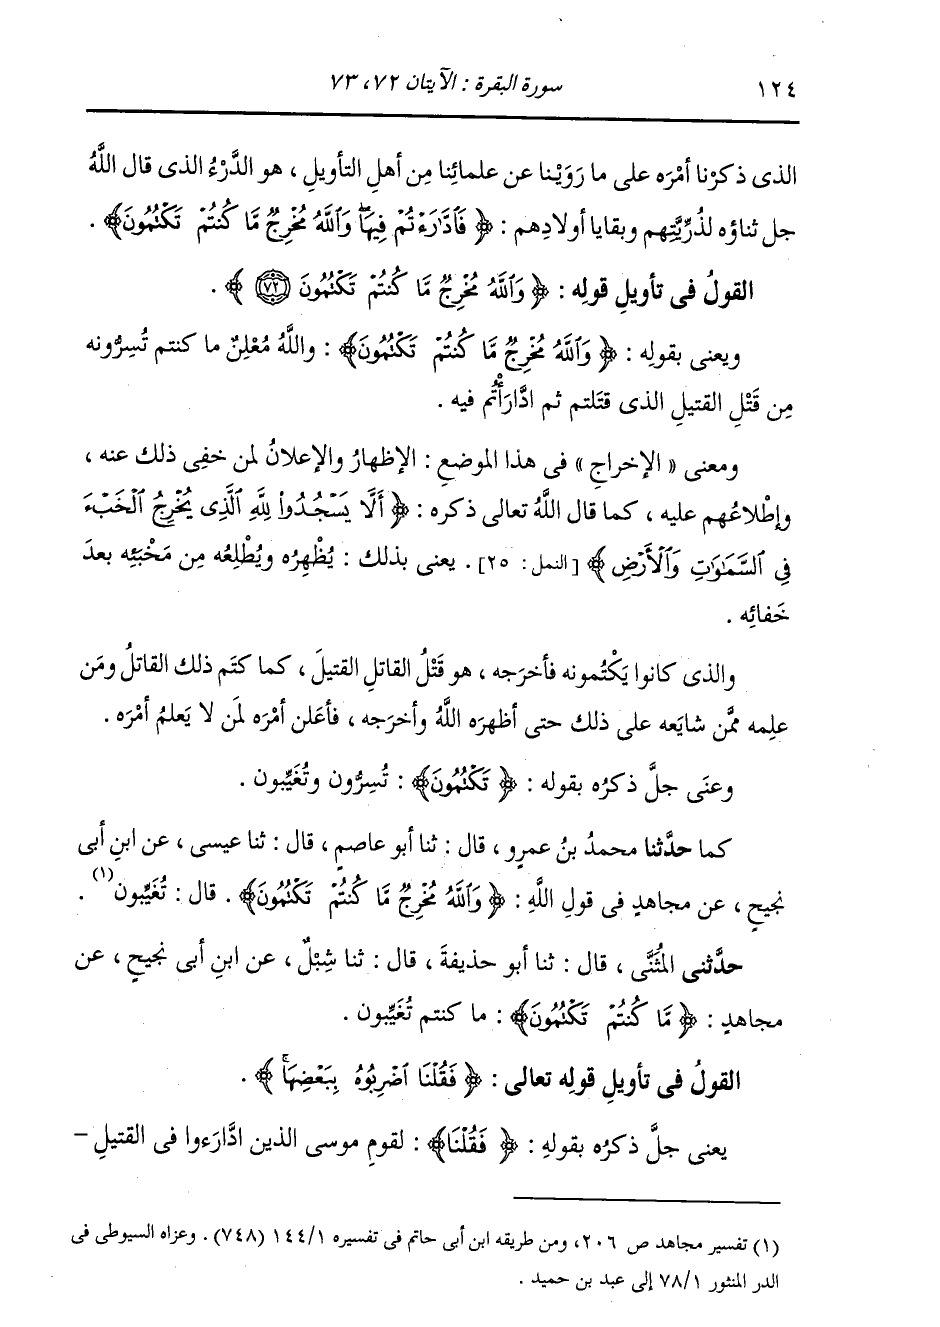 ١٢٤ سورة البقرة : الآيتان ٧٢، ٧٣
الذى ذكرْنا أمْرَه على ما رَوَيْنا عن علمائِنا مِن أهلِ التأويلِ ، هو الدَّرْءُ الذى قال اللَّهُ
جل ثناؤه لذُرِّيَّتِهم وبقايا أولادِهم : ﴿ فَٱدَّٰرَْٰٔتُمْ فِيهَاۖ وَٱللَّهُ مُخْرِجٌ مَّا كُنتُمْ تَكْتُمُونَ﴾ .
القولُ فى تأويلِ قولِه : ﴿ وَٱللَّهُ مُخْرِجٌ مَّا كُنتُمْ تَكْتُمُونَ ٧٢ ﴾ .
ويعنى بقولِه : ﴿ وَٱللَّهُ مُخْرِجٌ مَّا كُنتُمْ تَكْتُمُونَ﴾ : واللَّهُ مُعْلِنٌ ما كنتم تُسِرُّونه
مِن قَتْلِ القتيلِ الذى قتَلتم ثم ادَّارَأْتُم فيه .
ومعنى « الإخراجِ » فى هذا الموضعِ : الإظهارُ والإعلانُ لمن خفِى ذلك عنه ،
وإطْلاعُهم عليه ، كما قال اللَّهُ تعالى ذكره : ﴿ أَلَّا يَسْجُدُوا۟ لِلَّهِ ٱلَّذِى يُخْرِجُ ٱلْخَبْءَ
فِى ٱلسَّمَٰوَٰتِ وَٱلْأَرْضِ ﴾ [النمل: ٢٥] . يعنى بذلك : يُظْهِرُه ويُطْلِعُه مِن مَخْبَئِه بعدَ
خَفائِه .
والذى كانوا يَكْتُمونه فأخرَجه ، هو قَتْلُ القاتلِ القتيلَ ، كما كتَم ذلك القاتلُ ومَن
علِمه ممَّن شايَعه على ذلك حتى أظهرَه اللَّهُ وأخرَجه ، فأعْلن أمْرَه لمَن لا يَعلمُ أمْرَه .
وعنَى جلَّ ذكرُه بقوله : ﴿ تَكْتُمُونَ﴾ : تُسِرُّون وتُغَيِّبون .
كما حدَّثنا محمدُ بنُ عمرٍو ، قال : ثنا أبو عاصمٍ ، قال : ثنا عيسى ، عن ابنِ أبى
نجيحٍ ، عن مجاهدٍ فى قولِ اللَّهِ : ﴿ وَٱللَّهُ مُخْرِجٌ مَّا كُنتُمْ تَكْتُمُونَ﴾ . قال : تُغَيِّبون(١) .
حدَّثنى المُثَنَّى ، قال : ثنا أبو حذيفةَ ، قال : ثنا شِبْلٌ ، عن ابنِ أبى نجيحٍ ، عن
مجاهدٍ : ﴿ مَّا كُنتُمْ تَكْتُمُونَ﴾ : ما كنتم تُغَيِّبون .
القولُ فى تأويلِ قولِه تعالى : ﴿ فَقُلْنَا ٱضْرِبُوهُ بِبَعْضِهَاۚ ﴾ .
يعنى جلَّ ذكرُه بقولِه : ﴿ فَقُلْنَا﴾ : لقومِ موسى الذين ادَّارَءوا فى القتيلِ –
(١) تفسير مجاهد ص ٢٠٦، ومن طريقه ابن أبى حاتم فى تفسيره ١/ ١٤٤ (٧٤٨) . وعزاه السيوطى فى
الدر المنثور ١/ ٧٨ إلى عبد بن حميد .